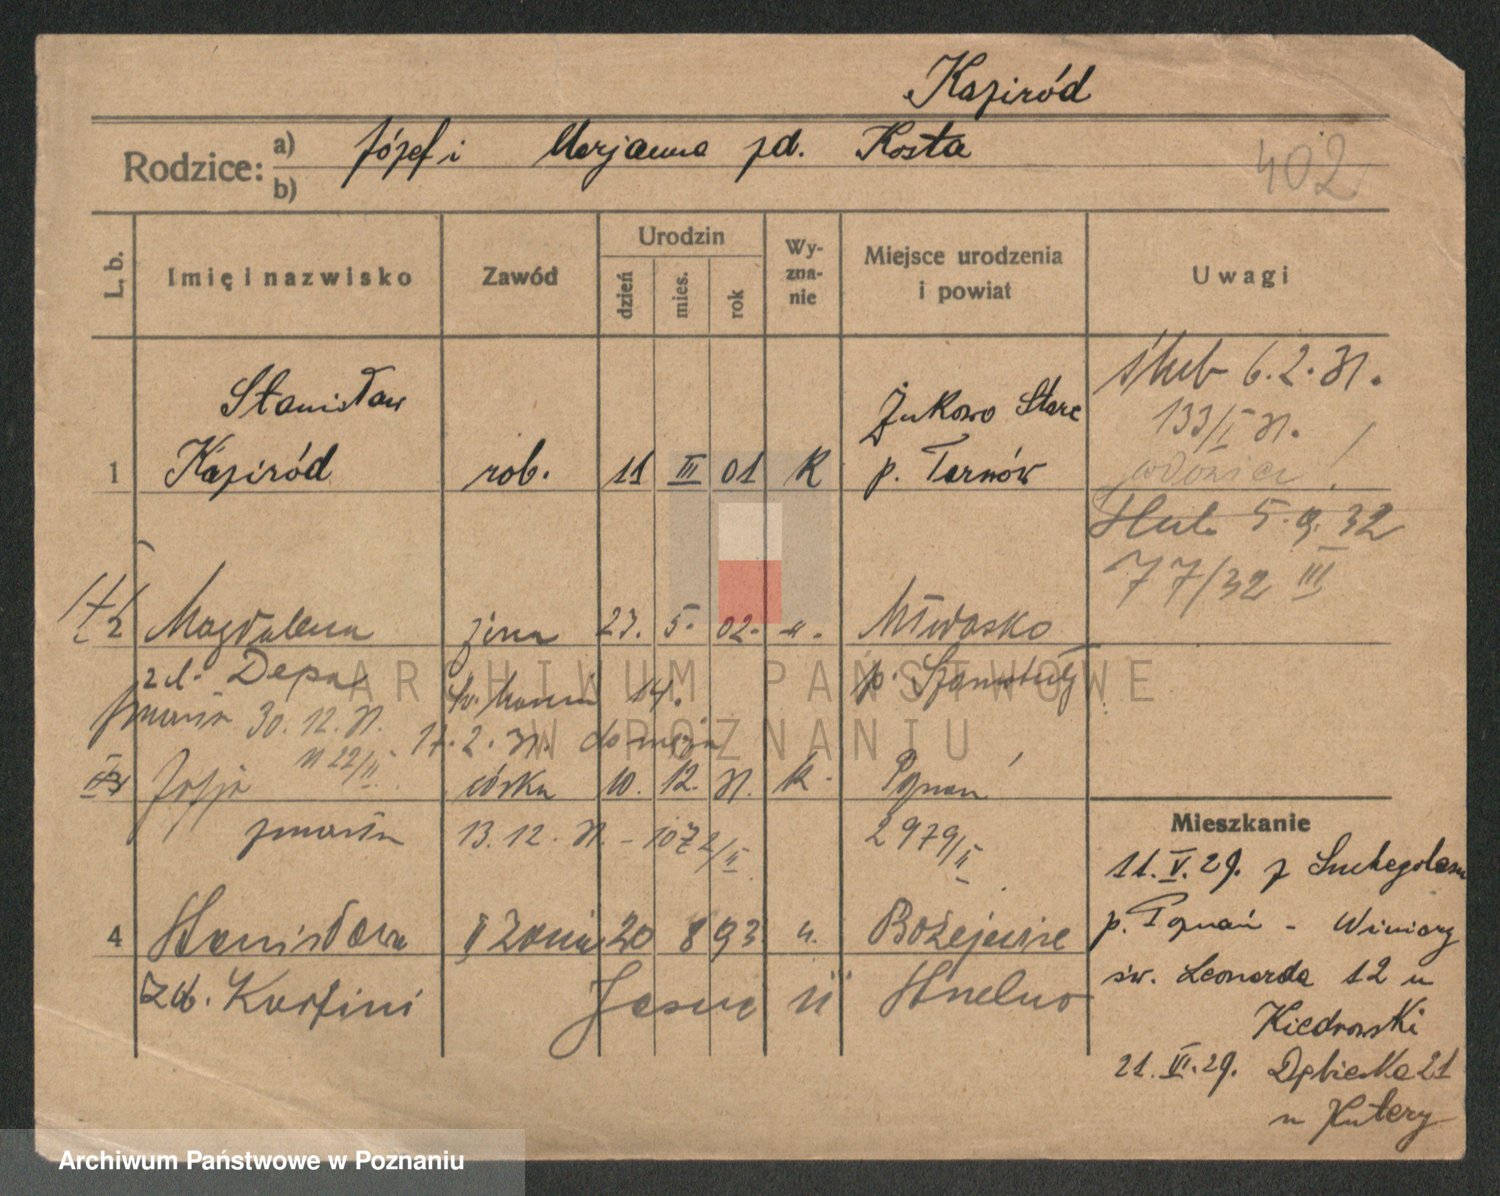 Kaziród
Rodzice: a) Józef i Marjanna zd. Kosta
b)
402
L. b.
Imię i nazwisko
Zawód
Urodzin
dzień
mies.
rok
Wy-
zna-
nie
Miejsce urodzenia
i powiat
Uwagi
1 Stanisław
Kaziród
rob. 11 III 01 k
Żukowo Stare
p. Tarnów
ślub 6.2.31.
133/I 31.
wdowiec!
ślub 5.9.32
77/32 III
2 Magdalena żona 23. 5. 02. "
p. Szamotuły
zd. Depa
14.
zmarła 30.12.31.
17.2.31. do męża
Zofja córka 10. 12. 31. k. Poznań
zmarła 13.12.31 - 1072/II
2979/II
4 Stanisława II żona 20 8 93 "
zd.
Strzelno
Mieszkanie
11.V.29. z Suchegolasu
p. Poznań - Winiary
św. Leonarda 12 u
Kiedrowski
21.VI.29. Dębiecka 21
u Kutery
ARCHIWUM PAŃSTWOWE
W POZNANIU
Archiwum Państwowe w Poznaniu